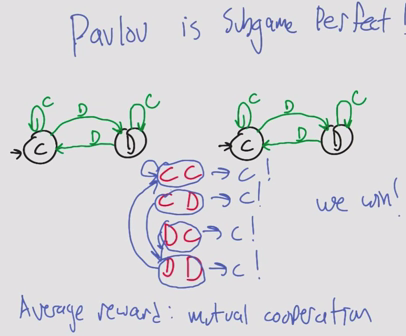 Pavlov is Subgame Perfect!
C C
D D
C D D C D D
C C → C!
C D → C!
we win!
D C → C!
D D → C!
Average reward: mutual cooperation